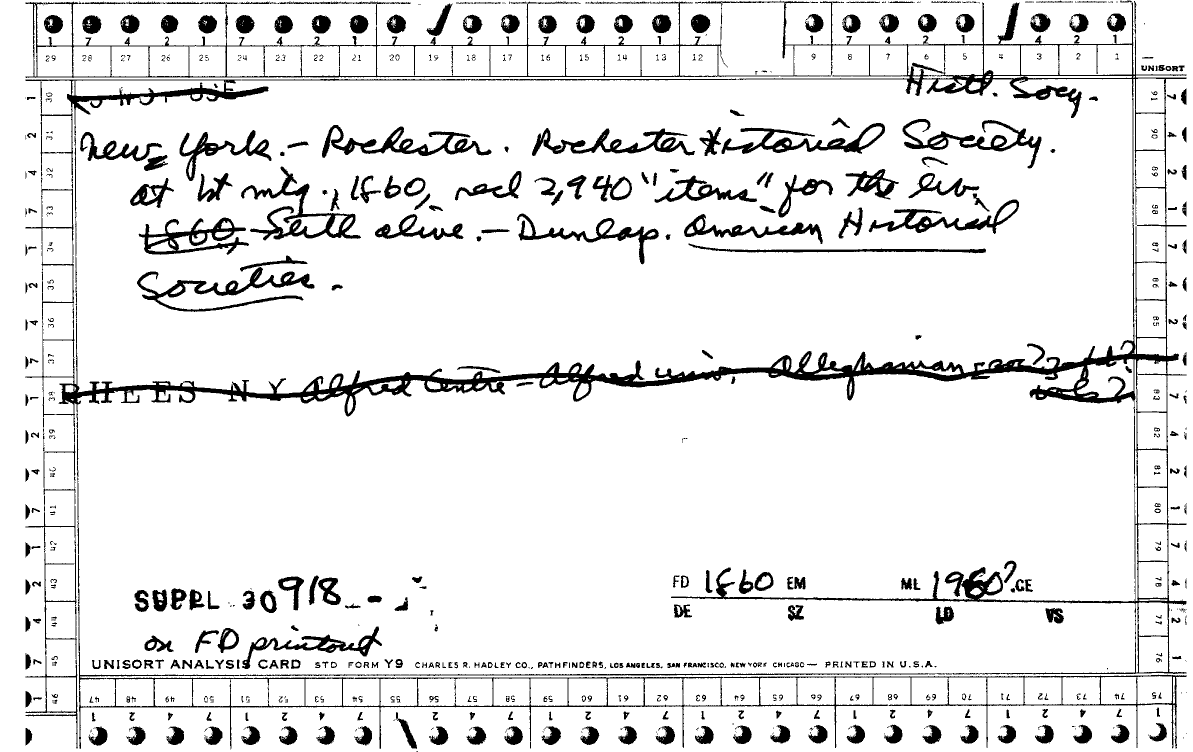 1 7 4 2 1 7 4 2 1 7 4 2 1 7 4 2 1 7 1 7 4 2 1 7 4 2 1
29 28 27 26 25 24 23 22 21 20 19 18 17 16 15 14 13 12 9 8 7 6 5 4 3 2 1
UNISORT
Histl. Socy.
New York. – Rochester. Rochester Historical Society.
at 1st mtg., 1860, recd 2,940 "items" for the lib.
1860, Still alive. – Dunlap. American Historical
Societies.
RHEES N Y Alfred Centre – Alfred Univ. Alleghanian = soc? fd?
vols?
SUPPL 30918
FD 1860 EM ML 1960? CE
DE SZ LD VS
on FD printout
UNISORT ANALYSIS CARD STD FORM Y9 CHARLES R. HADLEY CO., PATHFINDERS, LOS ANGELES, SAN FRANCISCO, NEW YORK CHICAGO — PRINTED IN U.S.A.
47 48 49 50 51 52 53 54 55 56 57 58 59 60 61 62 63 64 65 66 67 68 69 70 71 72 73 74 75